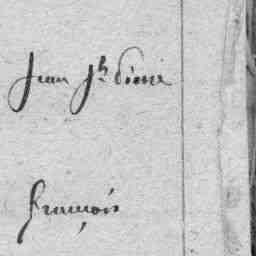 Jean Jh dit
François